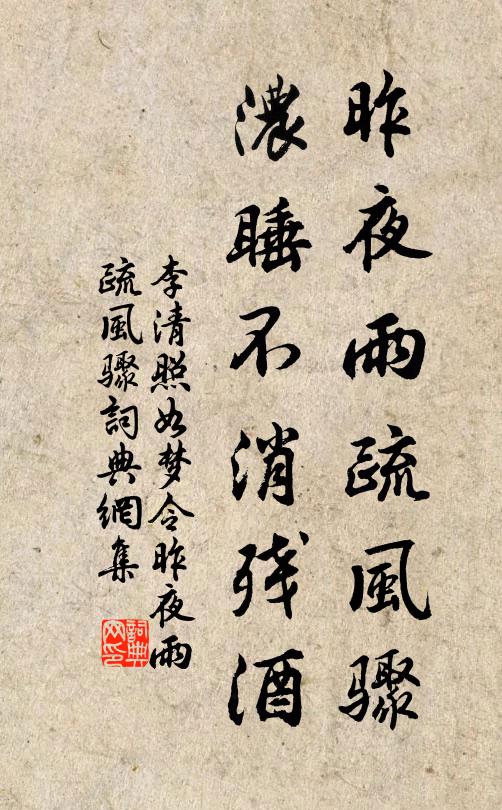 昨夜雨疏風驟
濃睡不消残酒
李清照如梦令昨夜雨
疏風驟詞典網集
詞典
网印